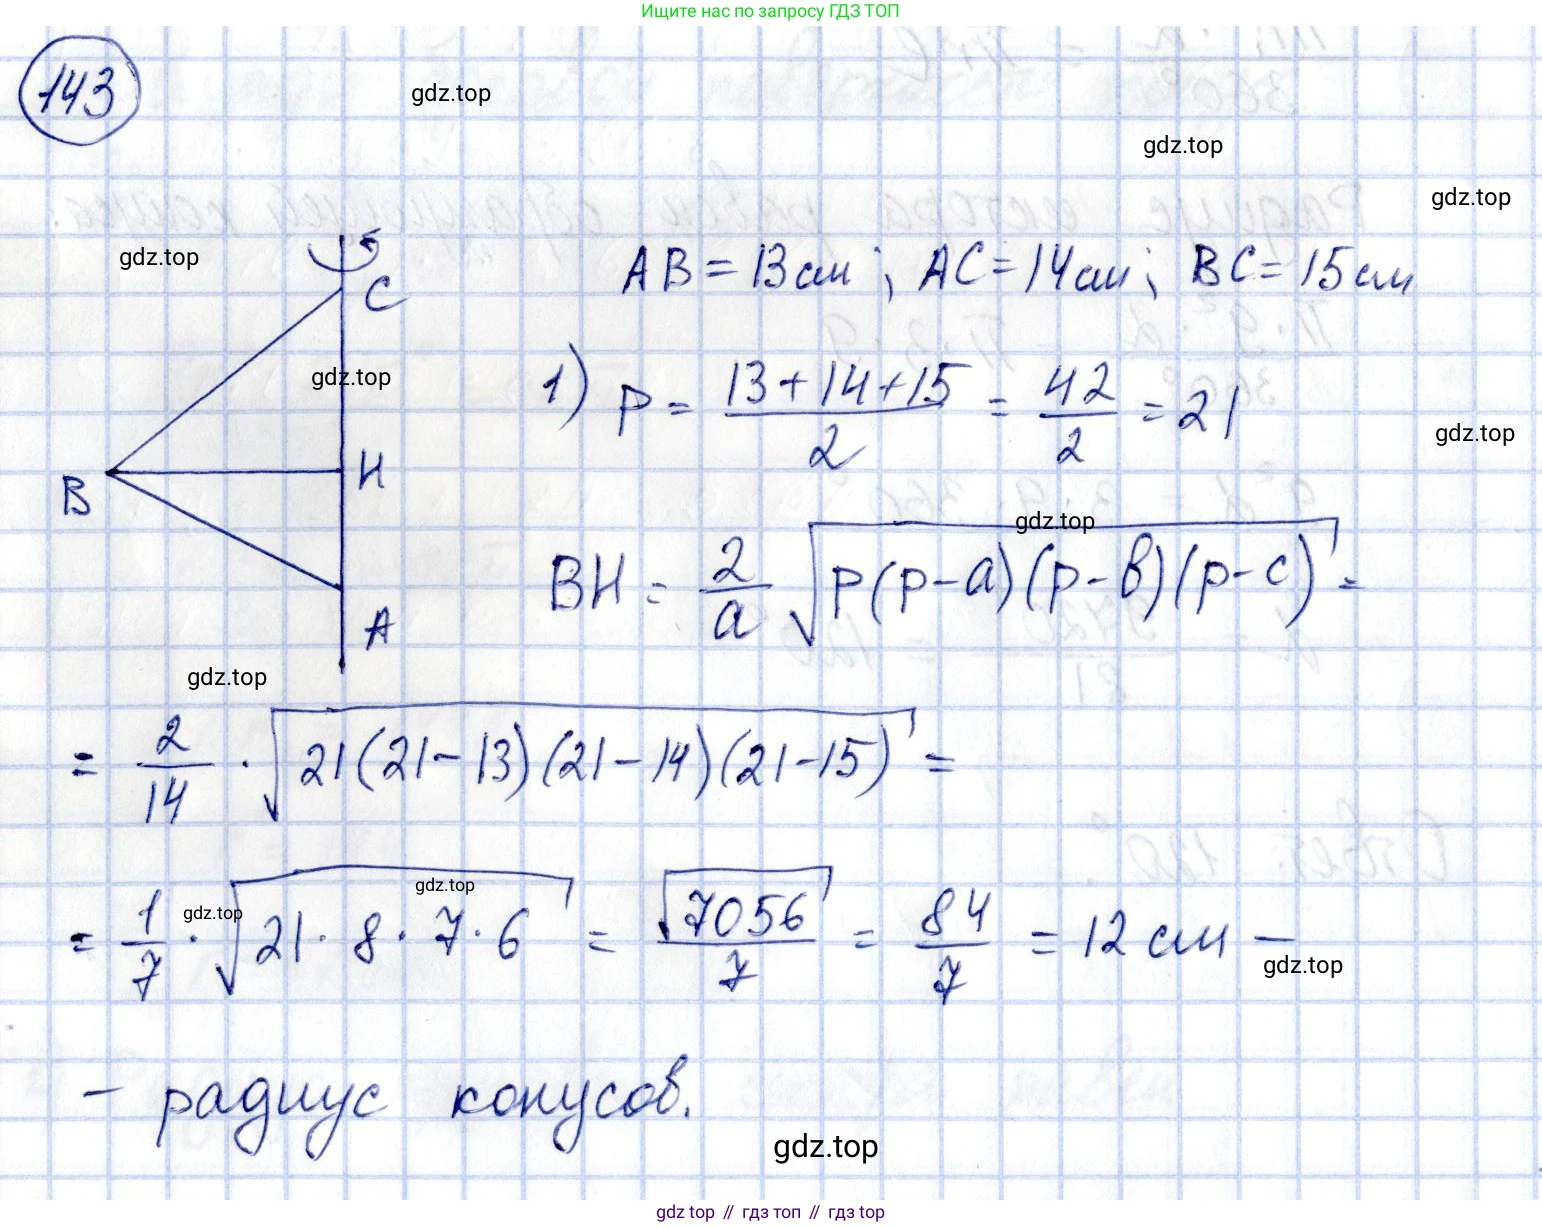 Ищите нас по запросу ГДЗ ТОП
143
gdz.top
gdz.top
gdz.top
gdz.top
AB = 13 см ; AC = 14 см ; BC = 15 см
C
gdz.top
1) p = (13 + 14 + 15)/2 = 42/2 = 21
gdz.top
B
H
gdz.top
BH = 2/a √(p(p-a)(p-b)(p-c)) =
A
gdz.top
= 2/14 · √(21(21-13)(21-14)(21-15)) =
gdz.top
gdz.top
= 1/7 · √(21 · 8 · 7 · 6) = √7056/7 = 84/7 = 12 см —
gdz.top
— радиус конусов.
gdz.top
gdz top // гдз топ // гдз top